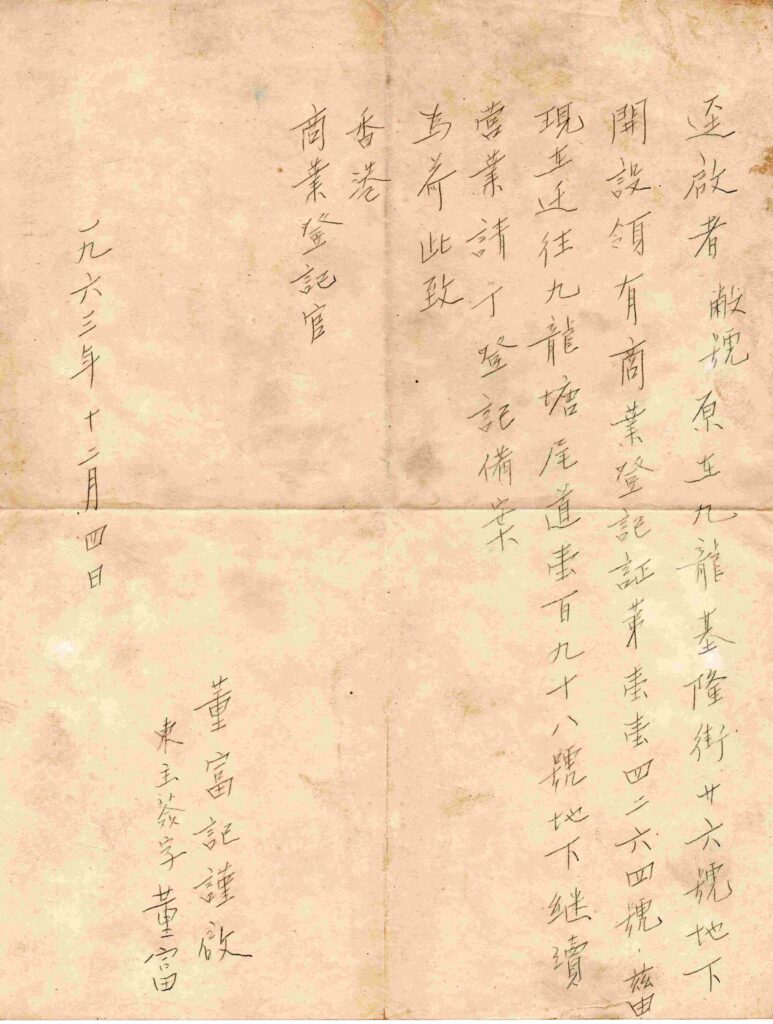 逕啟者敝號原在九龍基隆街廿六號地下
開設領有商業登記証第壹壹四二六四號、茲由
現在迁往九龍塘尾道壹百九十八號地下継續
營業請予登記備案
為荷此致
香港
商業登記官
董富記謹啟
東主簽字董富
一九六三年十二月四日